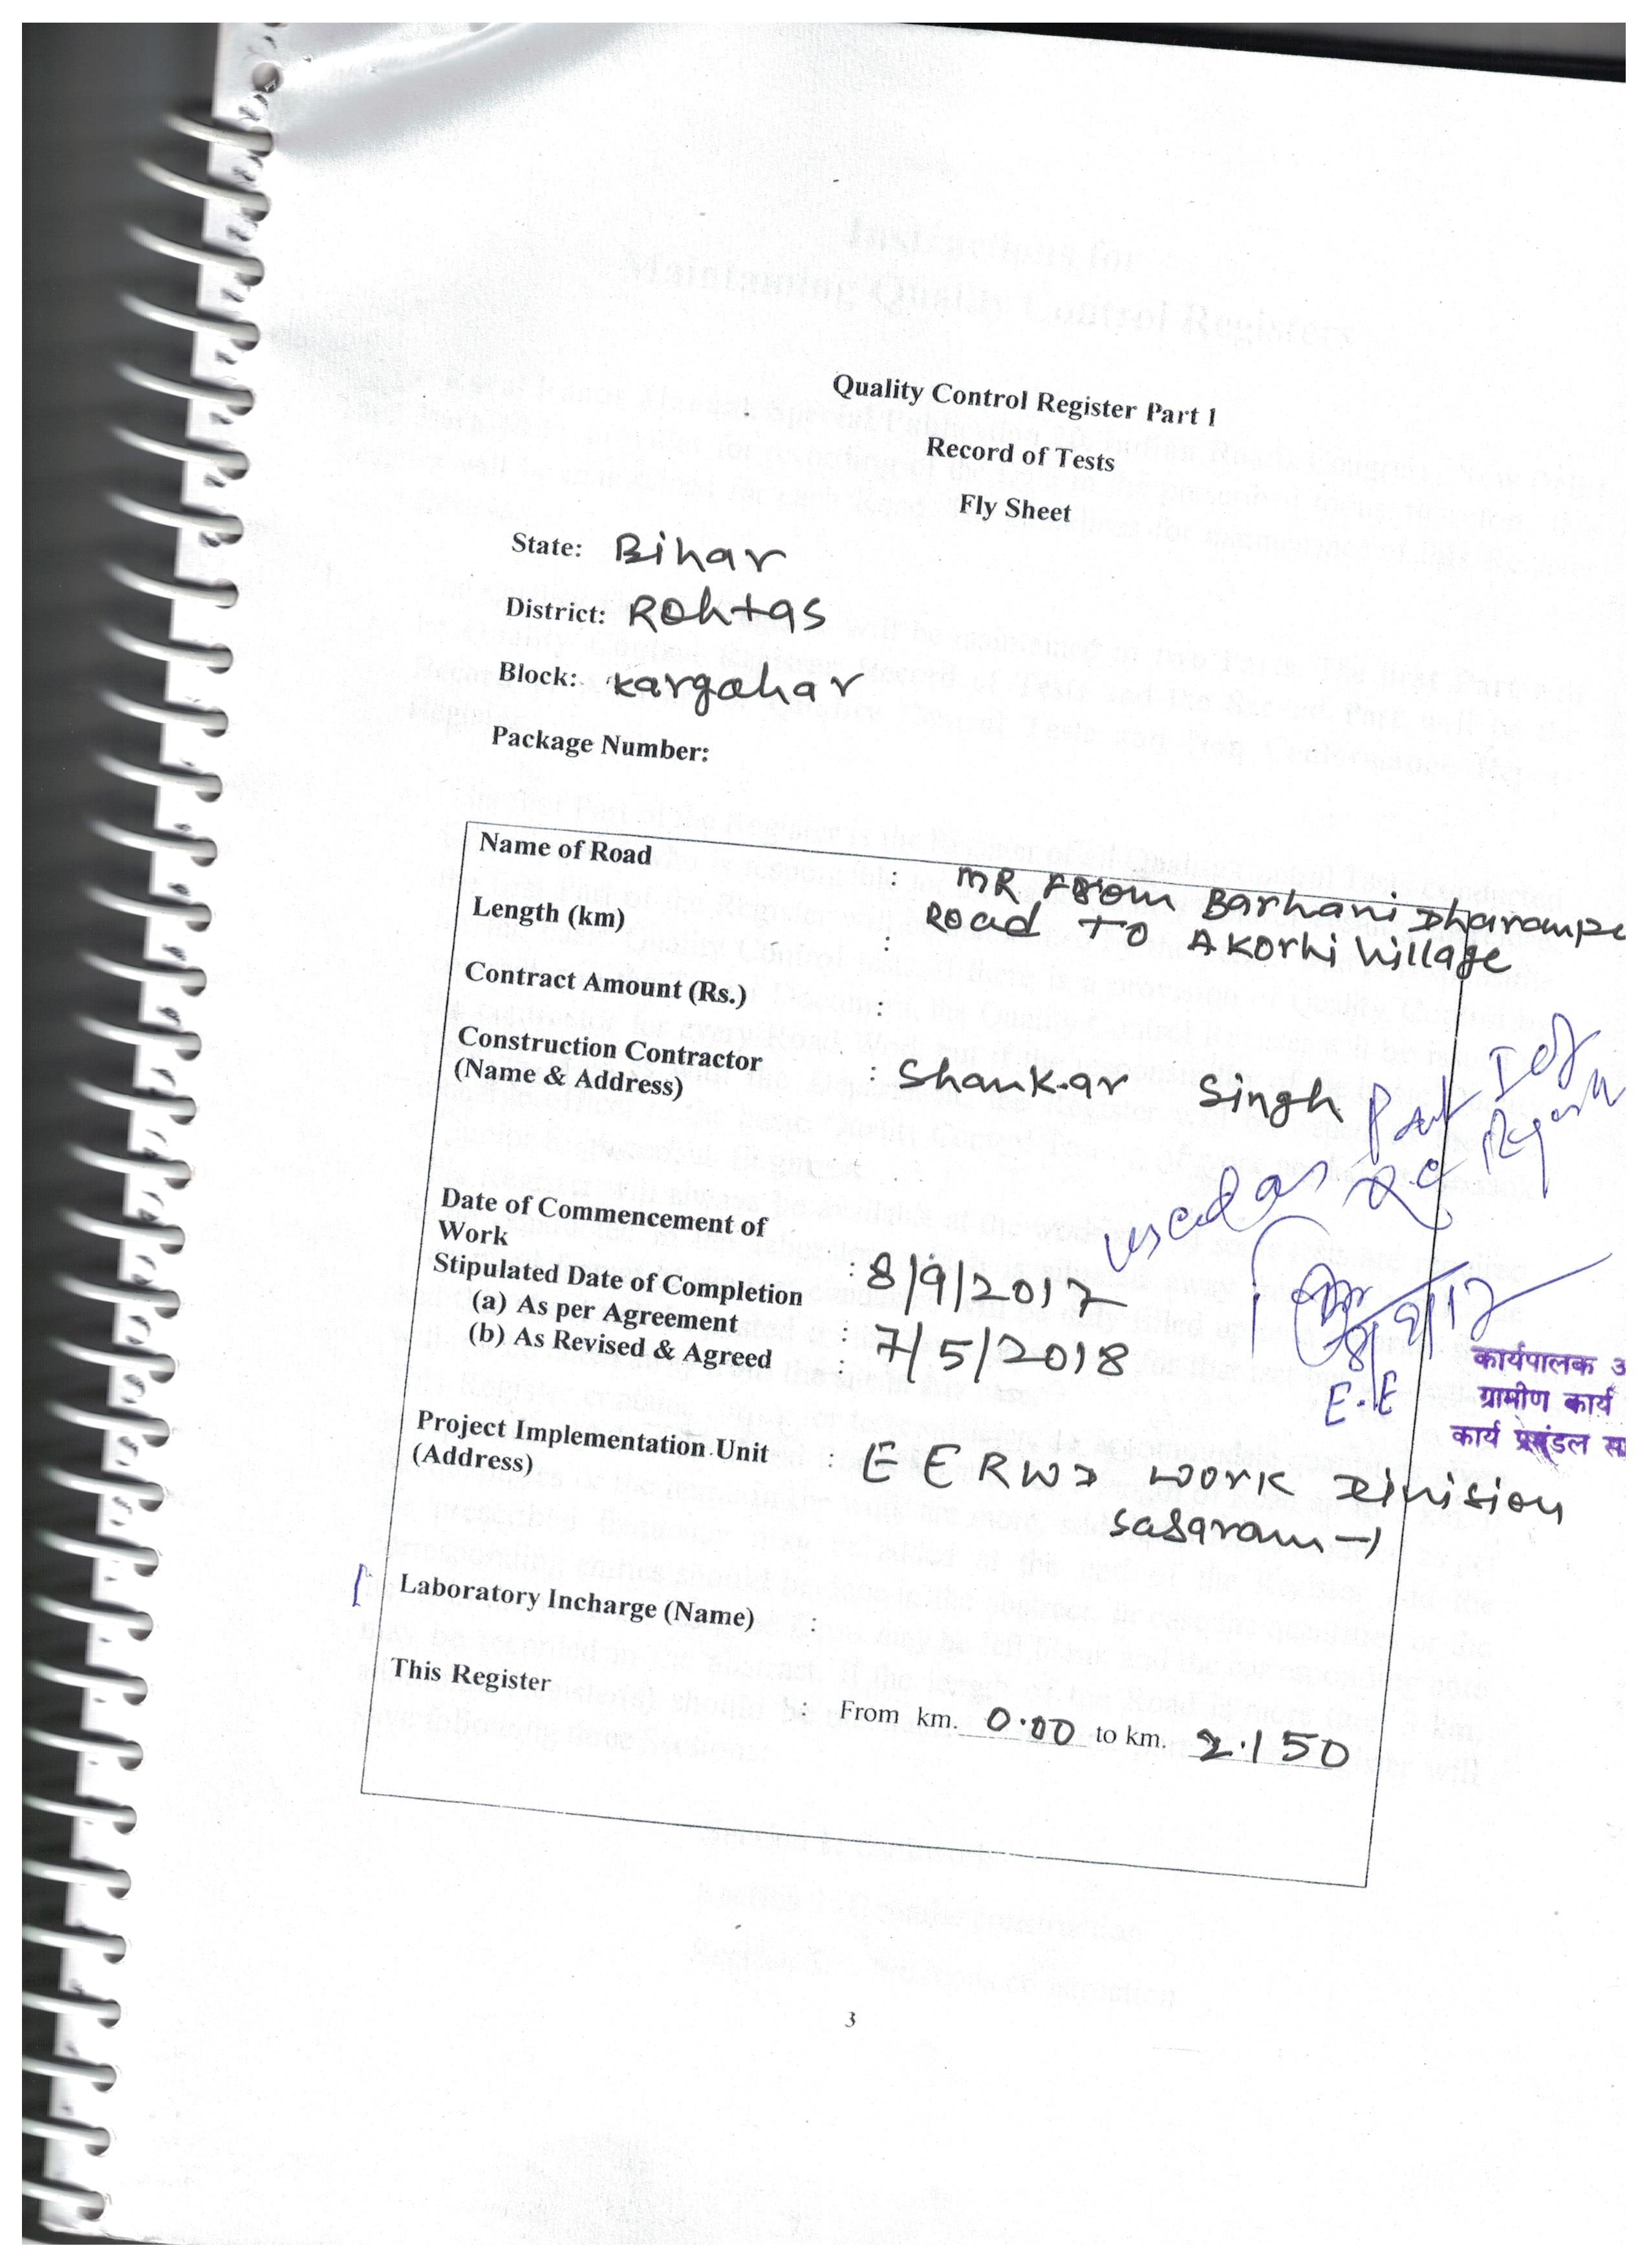 Quality Control Register Part 1
Record of Tests
Fly Sheet
State: Bihar
District: Rohtas
Block: Kargahar
Package Number:
Name of Road : MR From Barhani Dharampu
Road To Akorhi Village
Length (km) :
Contract Amount (Rs.) :
Construction Contractor : Shankar Singh
(Name & Address)
used as Part I of
QC
Date of Commencement of
Work : 8/9/2017
Stipulated Date of Completion
(a) As per Agreement : 7/5/2018
(b) As Revised & Agreed :
8/9/17
E.E
कार्यपालक अ
ग्रामीण कार्य
कार्य प्रमंडल सा
Project Implementation Unit : E E RWD Work Division
(Address) Sasaram-1
Laboratory Incharge (Name) :
This Register : From km. 0.00 to km. 2.150
3